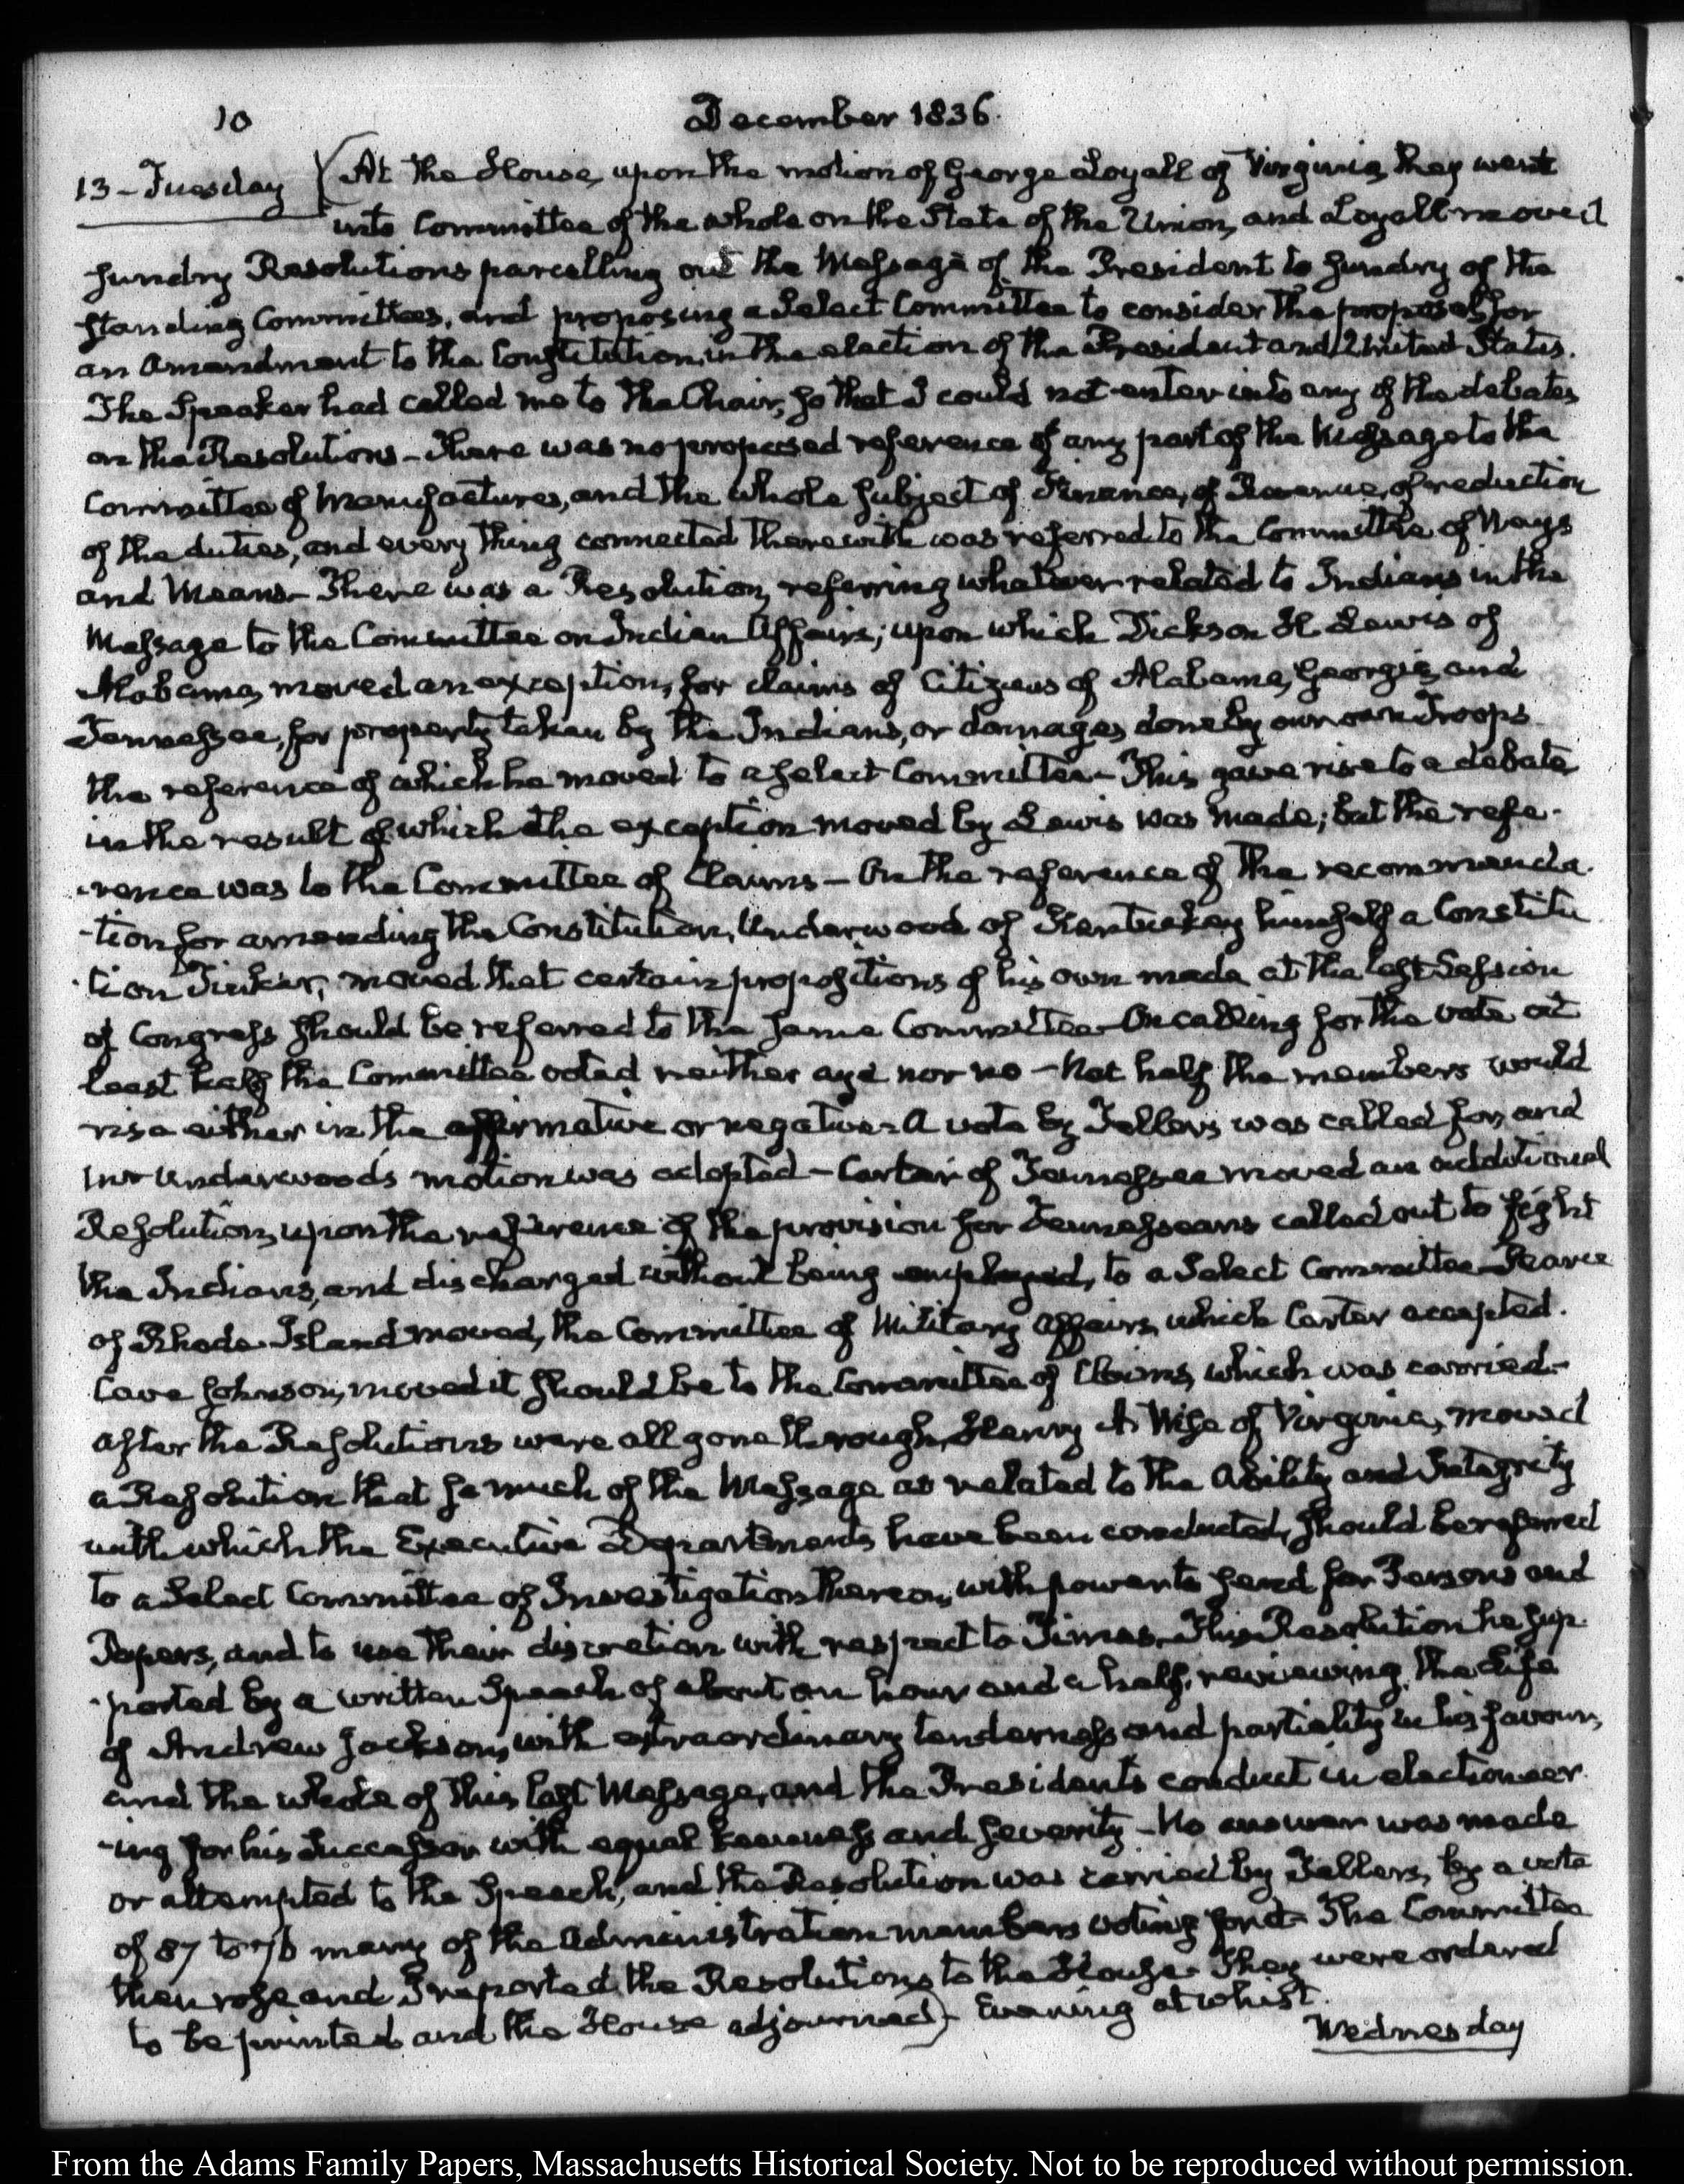 10
December 1836.
13 - Tuesday
(At the House, upon the motion of George Loyall of Virginia, they went
into Committee of the whole on the State of the Union, and Loyall moved
sundry Resolutions parcelling out the Message of the President to sundry of the
standing Committees, and proposing a Select Committee to consider the proposals for
an amendment to the Constitution, in the election of the President and United States.
The Speaker had called me to the Chair, so that I could not enter into any of the debates
on the Resolutions - There was no proposed reference of any part of the Message to the
Committee of Manufactures, and the whole subject of Finance, of Revenue, of reduction
of the duties, and every thing connected therewith was referred to the Committee of Ways
and Means - There was a Resolution, referring whatever related to Indians in the
Message to the Committee on Indian Affairs; upon which Dickson H. Lewis of
Alabama, moved an exception, for claims of Citizens of Alabama, Georgia, and
Tennessee, for property taken by the Indians, or damages done by our own Troops
the reference of which he moved to a select Committee - This gave rise to a debate
in the result of which the exception moved by Lewis was made; but the refe-
-rence was to the Committee of Claims - On the reference of the recommenda-
-tion for amending the Constitution, Underwood of Kentucky himself a Constitu
-tion Tinker, moved that certain propositions of his own made at the last Session
of Congress should be referred to the same Committee - On calling for the vote at
least half the Committee voted neither aye nor no - Not half the members would
rise either in the affirmative or negative - A vote by Tellers was called for, and
Mr Underwoods motion was adopted - Carter of Tennessee moved an additional
Resolution, upon the reference of the provision for Tennesseans called out to fight
the Indians, and discharged without being employed, to a Select Committee - Pearce
of Rhode-Island moved, the Committee of Military Affairs, which Carter accepted.
Cave Johnson, moved it should be to the Committee of Claims, which was carried -
After the Resolutions were all gone through, Henry A Wise of Virginia, moved
a Resolution that so much of the Message as related to the Ability and Integrity
with which the Executive Departments have been conducted, should be referred
to a Select Committee of Investigation thereon, with power to send for Persons and
Papers, and to use their discretion with respect to Times. This Resolution he sup-
-ported by a written Speech of about an hour and a half, reviewing the Life
of Andrew Jackson, with extraordinary tenderness and partiality in his favour,
and the whole of this last Message, and the Presidents conduct in electioneer-
-ing for his Successor with equal keenness and severity - No answer was made
or attempted to the Speech, and the Resolution was carried by Tellers, by a vote
of 87 to 76 many of the Administration members voting for it - The Committee
then rose and I reported the Resolutions to the House. They were ordered
to be printed and the House adjourned) - Evening at whist.
Wednesday
From the Adams Family Papers, Massachusetts Historical Society. Not to be reproduced without permission.